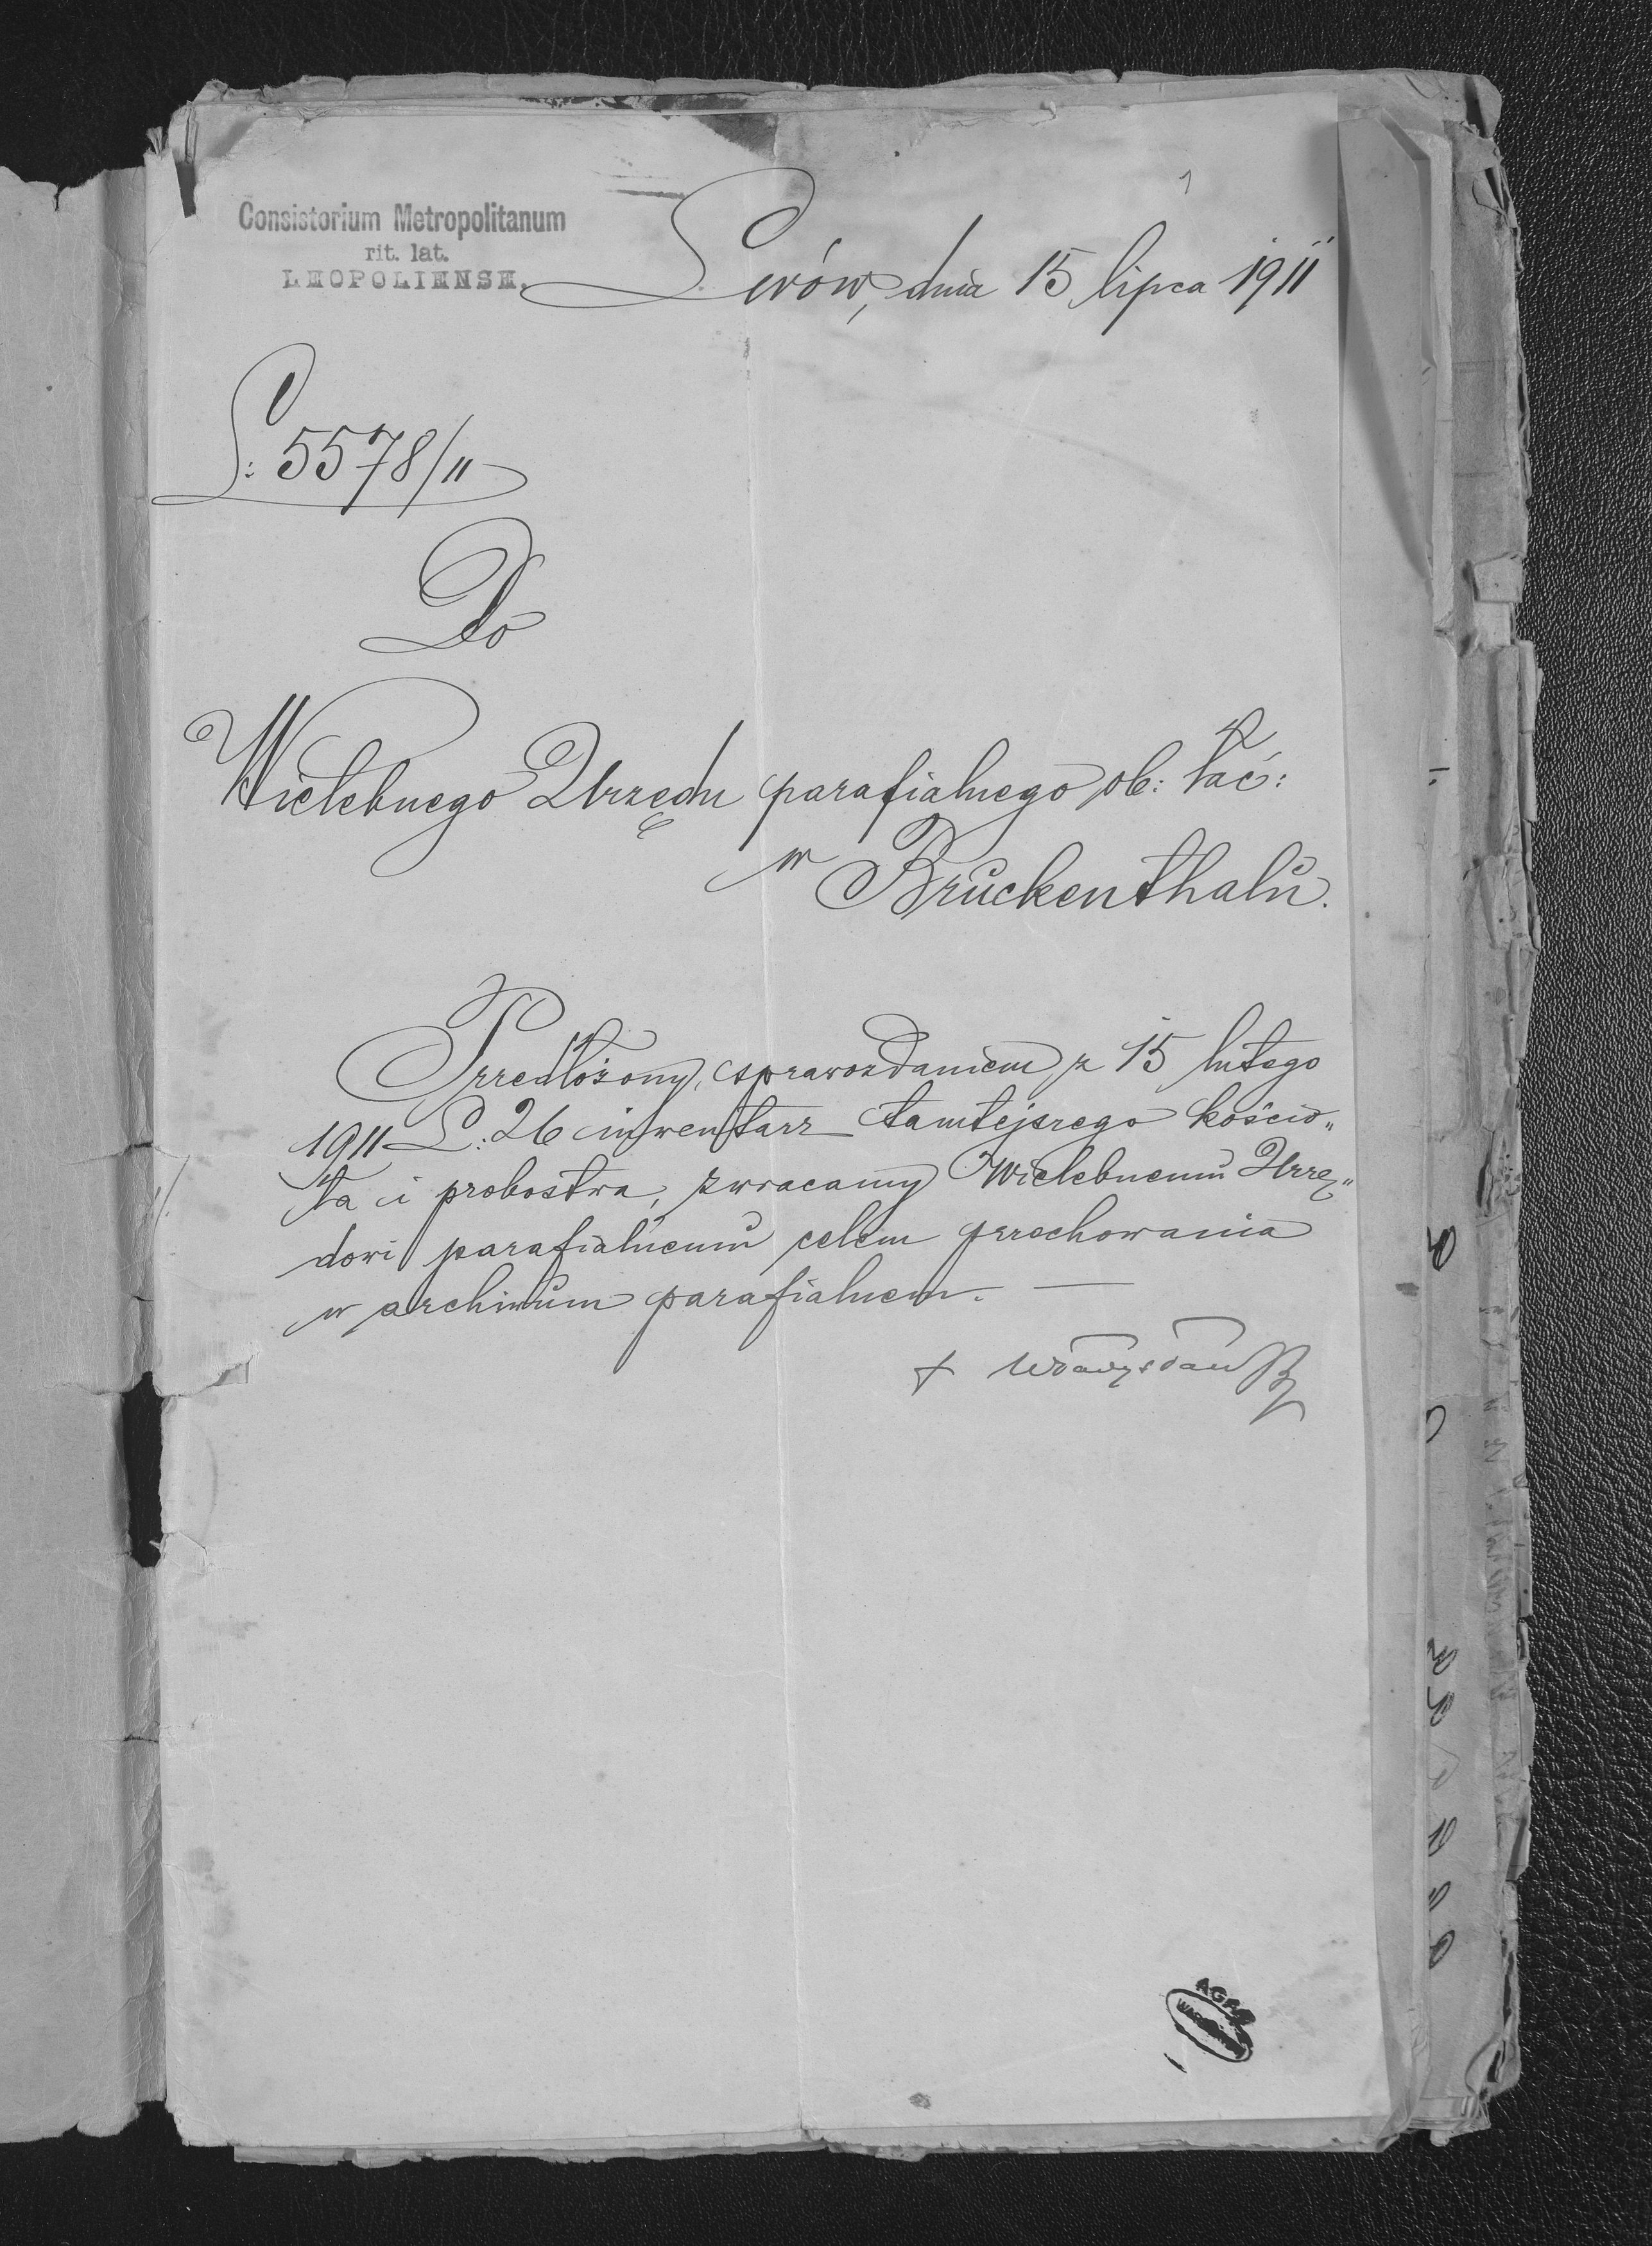 1
Consistorium Metropolitanum
rit. lat.
LEOPOLIENSE.
Lwów, dnia 15 lipca 1911
L: 5578/11
Do
Wielebnego Urzędu parafialnego ob: łać:
w Bruckenthalu.
Przedłożony, sprawozdaniem z 15 lutego
1911 L: 26 inwentarz tamtejszego kościo„
ła i probostwa, zwracamy Wielebnemu Urzę„
dowi parafialnemu celem przechowania
w archiwum parafialnem. —
+ Władysław
AGAD